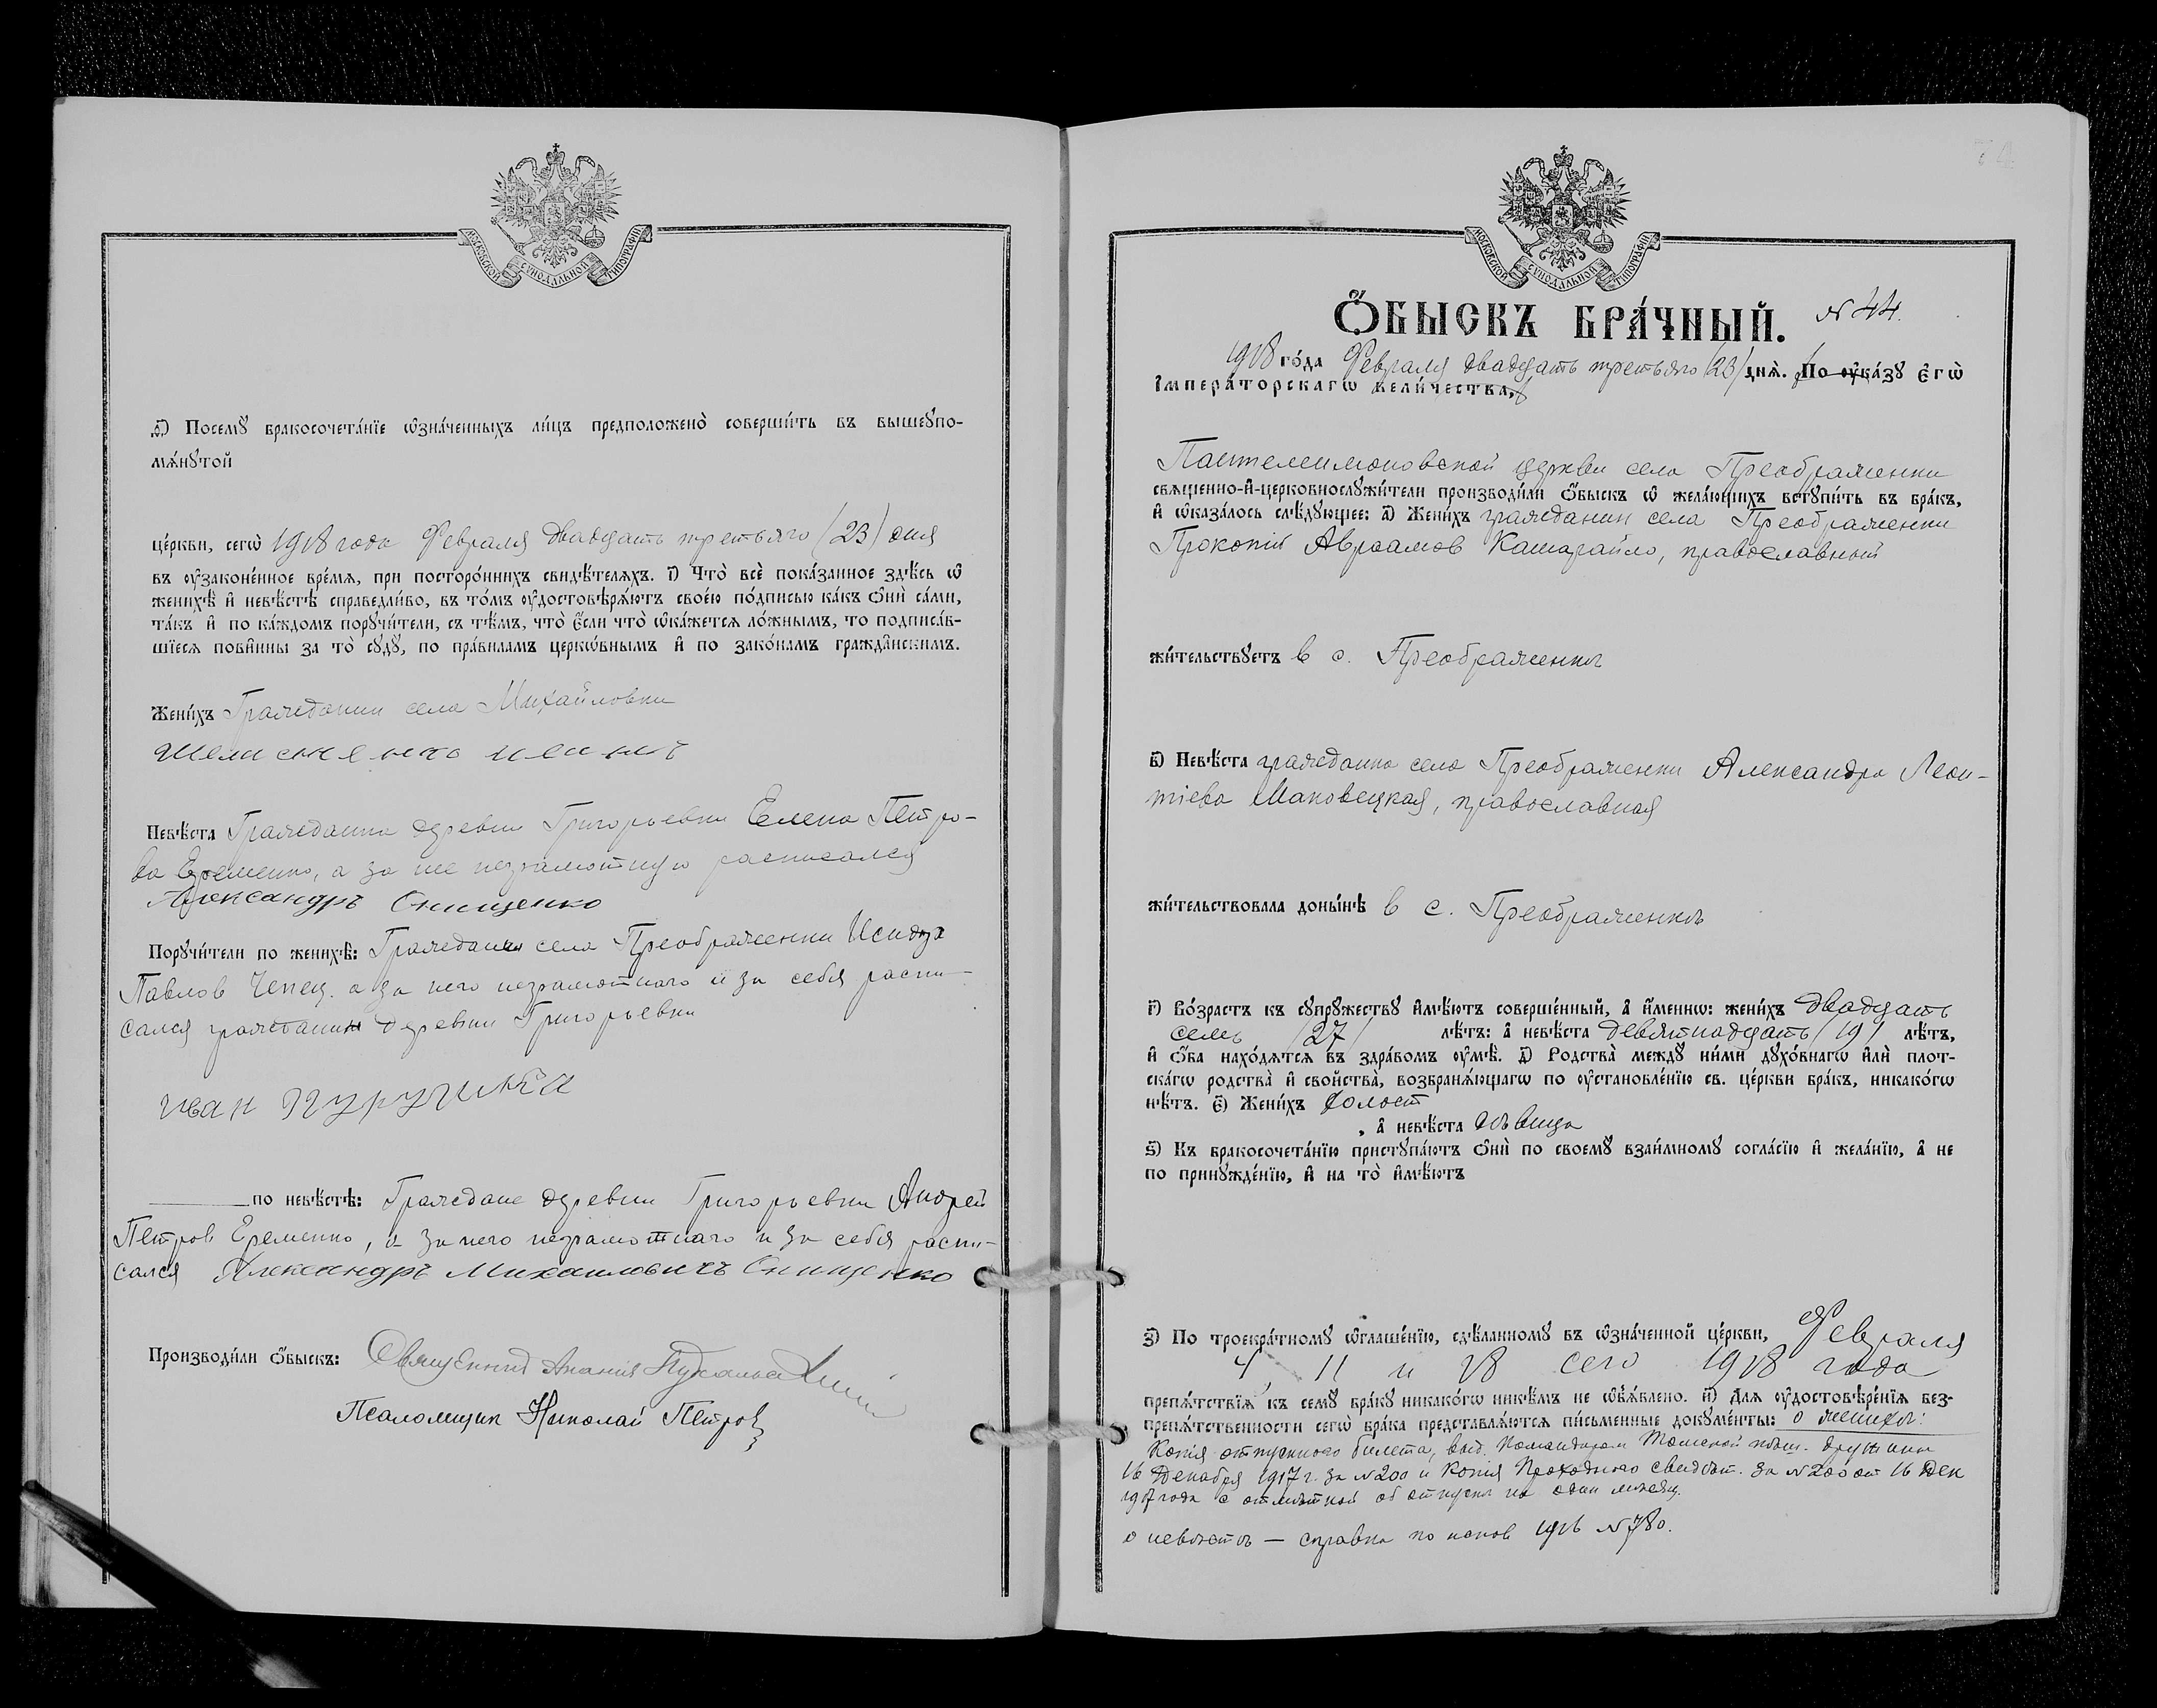 МОСКОВСКОЙ СѴНОДАЛЬНОЙ ТИПОГРАФІИ
д҃) Посемꙋ̀ бракосочета́нїе ѡ҆зна́ченныхъ ли́цъ предположено̀ соверши́ть въ вышеꙋпо-
мѧ́нꙋтой
це́ркви, сегѡ̀ 1918 года Февраля двадцать третьяго (23) дня
въ ᲂу҆законе́нное вре́мѧ, при посторо́ннихъ свидѣ́телѧхъ. і҃) Что̀ всѐ пока́занное здѣ́сь ѡ҆
женихѣ̀ и҆ невѣ́стѣ справедли́во, въ то́мъ ᲂу҆достовѣрѧ́ютъ свое́ю по́дписью ка́къ ѻ҆нѝ са́ми,
та́къ и҆ по ка́ждомъ порꙋчи́тели, съ тѣ́мъ, что̀ є҆́сли что̀ ѡ҆ка́жетсѧ ло́жнымъ, то подписа́в-
шїесѧ пови́нны за то̀ сꙋдꙋ̀, по пра́виламъ церкѡ́внымъ и҆ по зако́намъ гражда̑нскимъ.
Жени́хъ Гражданин села Михайловки
Невѣ́ста Гражданка деревни Григорьевки Елена Петро-
ва Еременко, а за нее неграмотную расписался
Александръ Онищенко
Порꙋчи́тели по женихѣ̀: Граждане села Преображенки Исидор
Павлов Чепец. а за него неграмотнаго и за себя распи-
сался гражданин деревни Григорьевки
иван
по невѣ́стѣ: Граждане деревни Григорьевки Андрей
Петров Еременко, а за него неграмотнаго и за себя распи-
сался Александръ Михаиловичъ Онищенко
Производи́ли ѻ҆́быскъ: Священник Анания
Псаломщик Николай Петров
МОСКОВСКОЙ СѴНОДАЛЬНОЙ ТИПОГРАФІИ
Ѻ҆́БЫСКЪ БРА́ЧНЫЙ. № 44.
1918 го́да Февраля двадцать третьяго (23) днѧ̀. По ᲂу҆ка́зꙋ є҆гѡ̀
І҆мпера́торскагѡ вели́чества,
Пантелеимоновской церкви села Преображенки
свѧще́нно-и҆-церковнослꙋжи́тели производи́ли ѻ҆́быскъ ѡ҆ жела́ющихъ встꙋпи́ть въ бра́къ,
и҆ ѡ҆каза́лось слѣ́дꙋющее: а҃) Жени́хъ гражданин села Преображенки
Прокопій Авраамов Кашагайло, православный
жи́тельствꙋетъ в с. Преображенкѣ
в҃) Невѣ́ста гражданка села Преображенки Александра Леон-
тіева Маковецкая, православная
жи́тельствовала доны́нѣ в с. Преображенкѣ
г҃) Во́зрастъ къ сꙋпрꙋ́жествꙋ и҆мѣ́ютъ соверше́нный, а҆ и҆́менно: жени́хъ двадцать
семь (27) лѣ́тъ: а҆ невѣ́ста девятнадцать (19) лѣ́тъ,
и҆ ѻ҆́ба нахо́дѧтсѧ въ здра́вомъ ᲂу҆мѣ̀. д҃) Родства̀ междꙋ̀ ни́ми дꙋхо́внагѡ и҆лѝ плот-
ска́гѡ родства̀ и҆ сво́йства̀, возбранѧ́ющагѡ по ᲂу҆становле́нїю св. це́ркви бра́къ, никако́гѡ
нѣ́тъ. є҃) Жени́хъ холост
, а҆ невѣ́ста дѣвица
ѕ҃) Къ бракосочета́нїю пристꙋпа́ютъ ѻ҆нѝ по своемꙋ̀ взаи́мномꙋ согла́сїю и҆ жела́нїю, а҆ не
по принꙋжде́нїю, и҆ на то̀ и҆мѣ́ютъ
з҃) По троекра́тномꙋ ѡ҆глаше́нїю, сдѣ́ланномꙋ въ ѡ҆зна́ченной це́ркви, Февраля
4, 11 и 18 сего 1918 года
препѧ́тствїѧ къ семꙋ̀ бра́кꙋ никако́гѡ никѣ́мъ не ѡ҆б̾ѧ́влено. и҃) Длѧ ᲂу҆достовѣре́нїѧ без-
препѧ́тственности сегѡ̀ бра́ка представлѧ́ютсѧ пи́сьменные докꙋме́нты: о женихѣ:
Копія отпускного билета, выд. Командиром Томской пѣш. дружины
16 Декабря 1917 г. за № 200 и Копія Проходного свидѣт. за № 200 от 16 Дек
1917 года с отмѣткой об отпуске на один мѣсяц.
о невѣстѣ — справка по испов 1916 № 780.